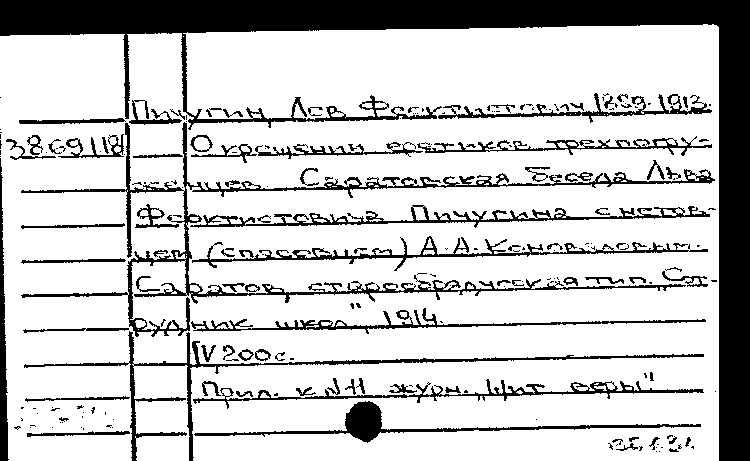 Пичугин, Лев Феоктистович, 1859-1913.
3869118 О крещении еретиков трехпогру-
женцев. Саратовская беседа Льва
Феоктистовича Пичугина с нетов-
цем (спасовцем) А.А. Коноваловым.
Саратов, старообрядческая тип. "Сот-
рудник школ", 1914.
IV, 200 с.
Прил. к №11 журн. "Щит веры"